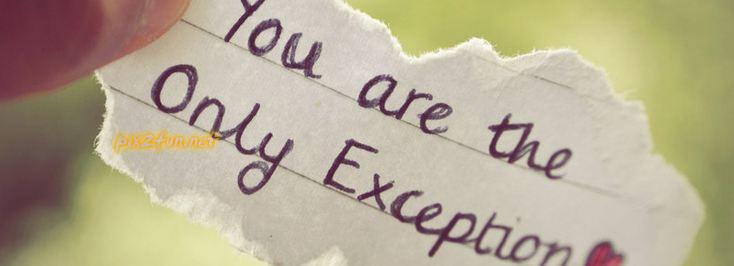 You are the
Only Exception
pix2fun.net